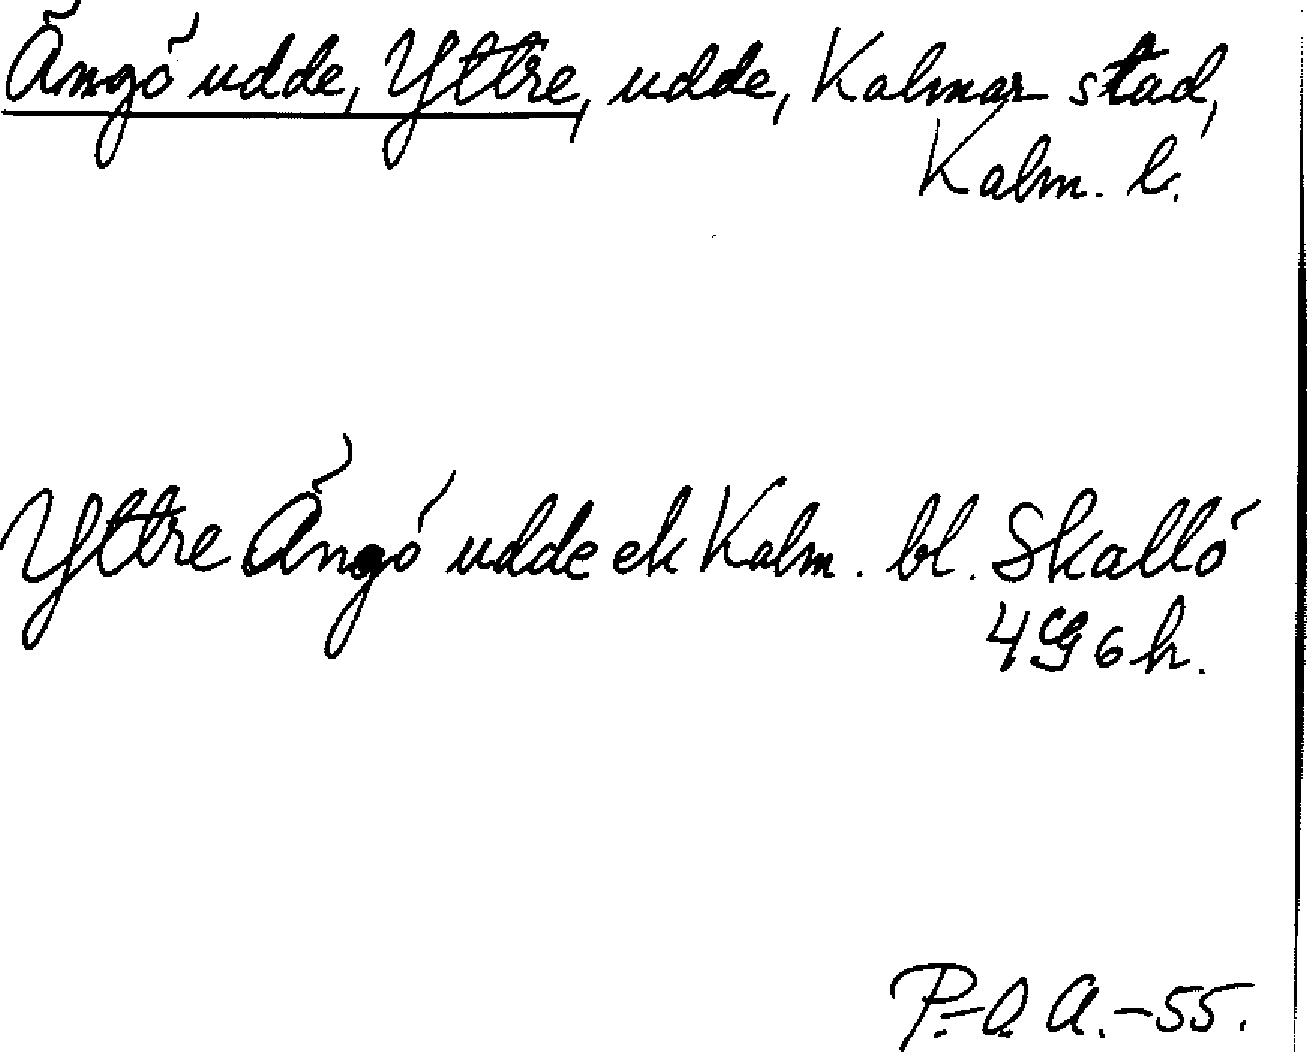 Ängö udde, Yttre, udde, Kalmar stad,
Kalm. l.
Yttre Ängö udde ek Kalm. bl. Skallö
4G6h.
P.-O. A.-55.